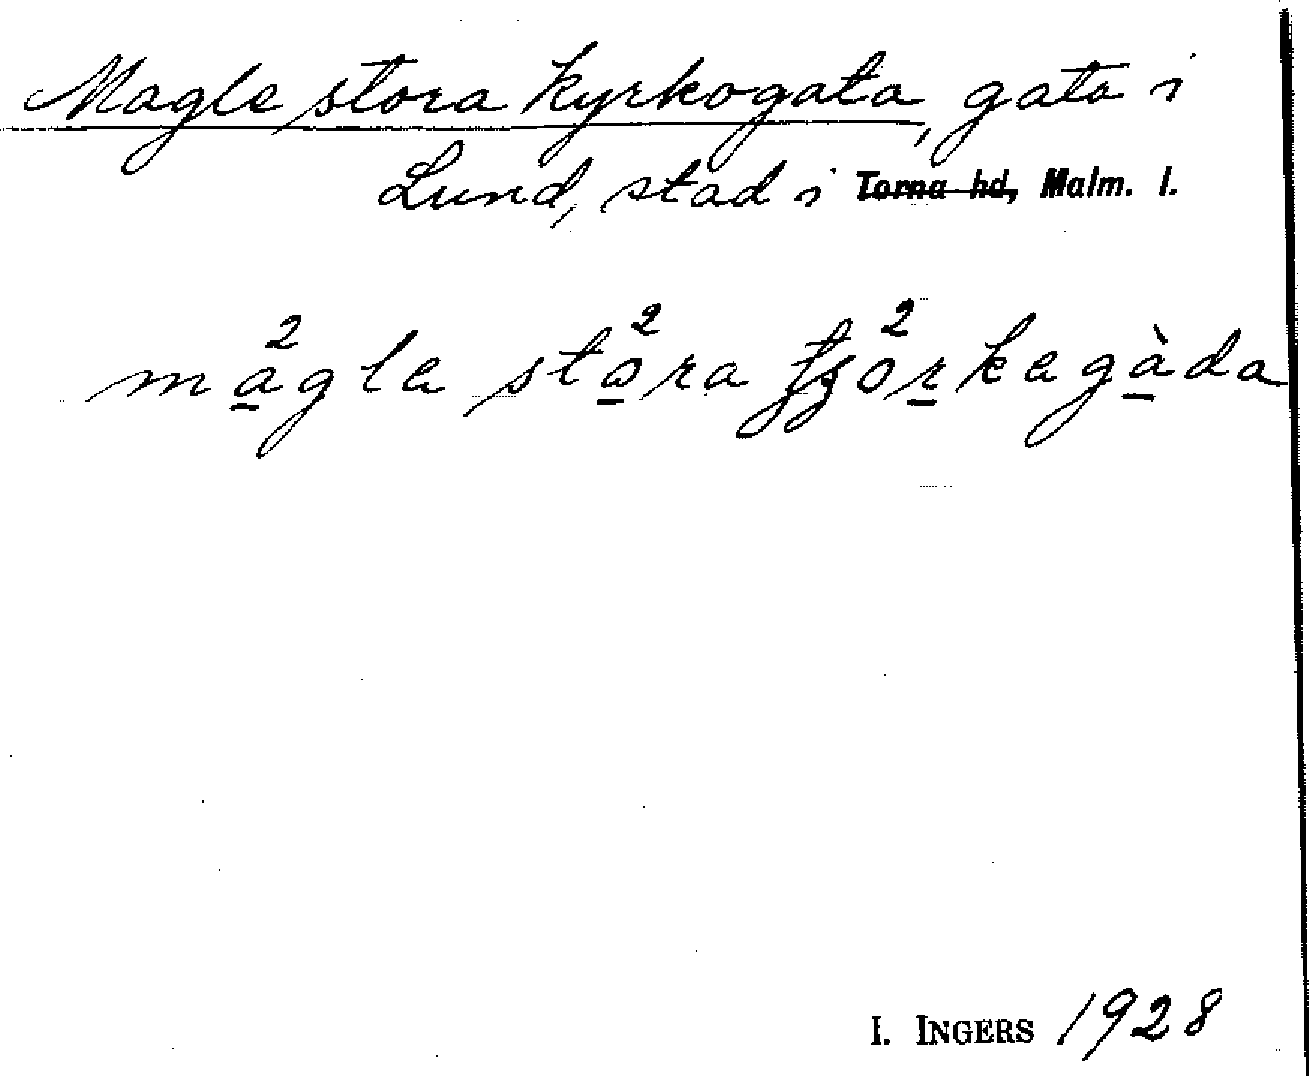 Magle stora kyrkogata, gata i
Lund, stad i Torna hd, Malm. l.
ma²gle sto²ra tʃo²rkegàda
I. INGERS 1928